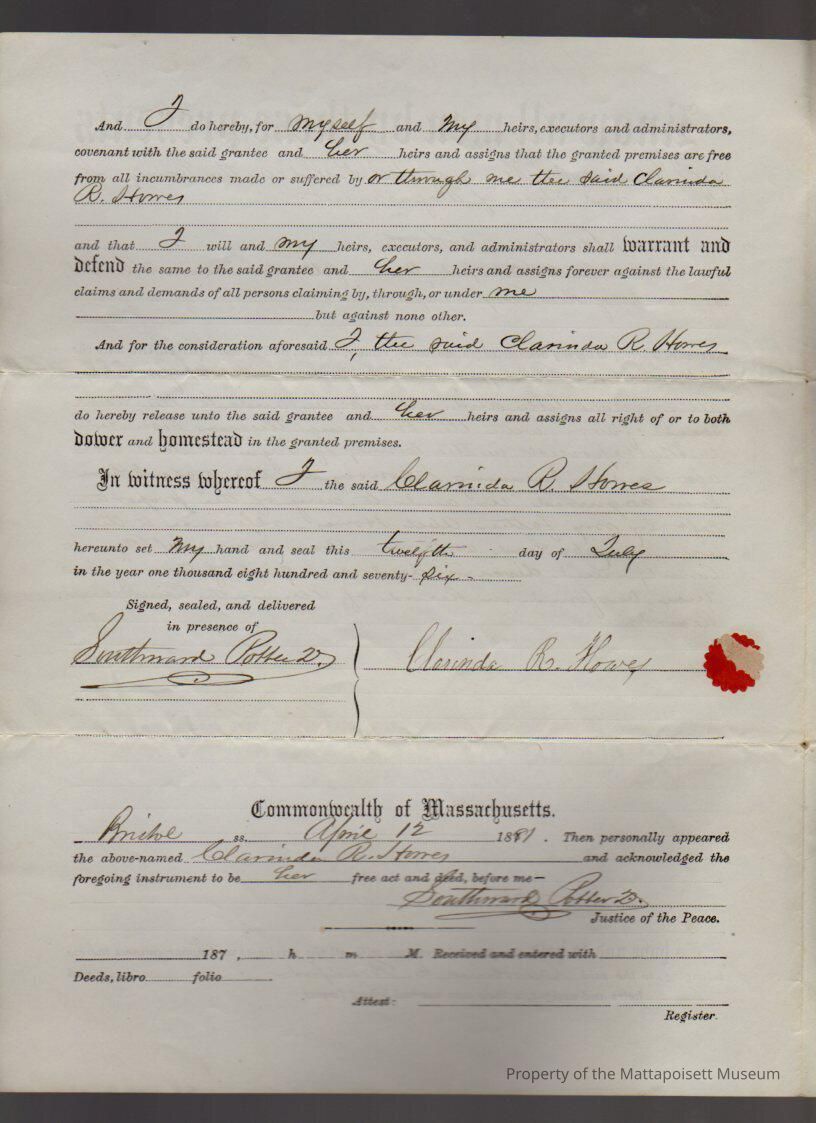 And I do hereby, for myself and my heirs, executors and administrators,
covenant with the said grantee and her heirs and assigns that the granted premises are free
from all incumbrances made or suffered by or through me the said Clarinda
R. Howes
and that I will and my heirs, executors, and administrators shall warrant and
defend the same to the said grantee and her heirs and assigns forever against the lawful
claims and demands of all persons claiming by, through, or under me
but against none other.
And for the consideration aforesaid I, the said Clarinda R. Howes
do hereby release unto the said grantee and her heirs and assigns all right of or to both
dower and homestead in the granted premises.
In witness whereof I the said Clarinda R. Howes
hereunto set my hand and seal this twelfth day of July
in the year one thousand eight hundred and seventy-six.
Signed, sealed, and delivered
in presence of
Southward Potter Clarinda R. Howes
Commonwealth of Massachusetts.
Bristol ss. April 12 1881. Then personally appeared
the above-named Clarinda R. Howes and acknowledged the
foregoing instrument to be her free act and deed, before me—
Southward Potter
Justice of the Peace.
187 , h m M. Received and entered with
Deeds, libro folio
Attest:
Register.
Property of the Mattapoisett Museum